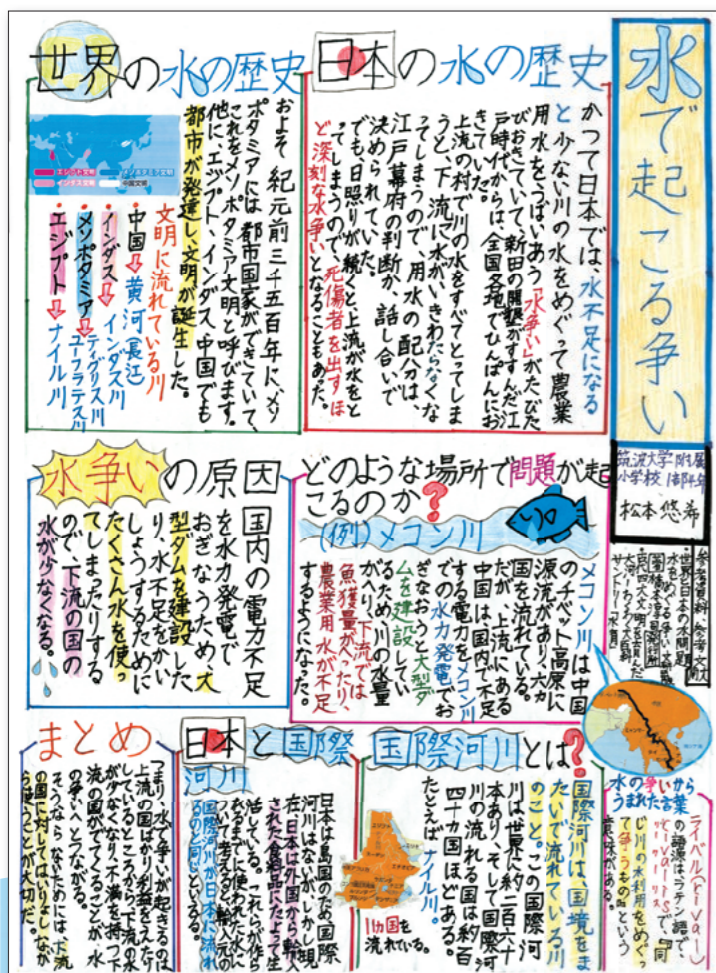 水で起こる争い
筑波大学附属
小学校 1部4年
松本 悠希
日本の水の歴史
かつて日本では、水不足になる
と少ない川の水をめぐって農業
用水をうばいあう「水争い」がたびた
びおきていて、新田の開墾がすすんだ江
戸時代からは、全国各地でひんぱんにお
きていた。
上流の村で川の水をすべてとってしま
うと、下流に水がいきわたらなくな
ってしまうので、用水の配分は、
江戸幕府の判断や、話し合いで
決められていた。
でも、日照りが続くと上流が水をと
ってしまうので、死傷者を出すほ
ど深刻な水争いとなることもあった。
世界の水の歴史
エジプト文明
メソポタミア文明
インダス文明
中国文明
およそ紀元前三千五百年に、メソ
ポタミアには都市国家ができていて、
これをメソポタミア文明と呼びます。
他に、エジプト、インダス、中国でも
都市が発達し、文明が誕生した。
文明に流れている川
・中国⇨黄河(長江)
・インダス⇨インダス川
・メソポタミア⇨ティグリス川
ユーフラテス川
・エジプト⇨ナイル川
どのような場所で問題が起
こるのか?
(例)メコン川
メコン川は中国
のチベット高原に
源流があり、六か
国を流れている。
だが、上流にある
中国は、国内で不足
する電力をメコン川
での水力発電でお
ぎなおうと大型ダ
ムを建設してい
るため、川の水量
がへり、下流では
魚獲量がへったり、
農業用水が不足
するようになった。
水争いの原因
国内の電力不足
を水力発電で
おぎなうため、大
型ダムを建設した
り、水不足をかい
しょうするために
たくさん水を使っ
てしまったりする
ので、下流の国の
水が少なくなる。
参考資料・参考文献
・世界と日本の水問題
水の争いから
うまれた言葉
ライバル(rival)
の語源は、ラテン語で
rivalisで、「同
じ川の水利用をめぐっ
て争うもの」という
意味がある。
国際河川とは?
国際河川は、国境をま
たいで流れている川
のこと。この国際河
川は、世界に約二百六十
本あり、そして国際河
川の流れる国は約百
四十カ国ほどある。
たとえば、ナイル川。
11か国を
流れている。
日本と国際
河川
日本は島国のため国際
河川はないが、しかし現
在、日本は外国から輸入
された食料品にたよって生
活している。これらが作ら
れるまでに使われた水に
ついて考えると、輸入元の
国際河川が日本に流れ
るのと同じといえる。
まとめ
つまり、水で争いが起きるのは
上流の国ばかり利益をえたり
しているところから、下流の水
が少なくなり、不満を持つ下
流の国がでてくることが、水
の争いへとつながる。
そうならないためには、下流
の国に対してはいりょしなが
ら使うことが大切だ。